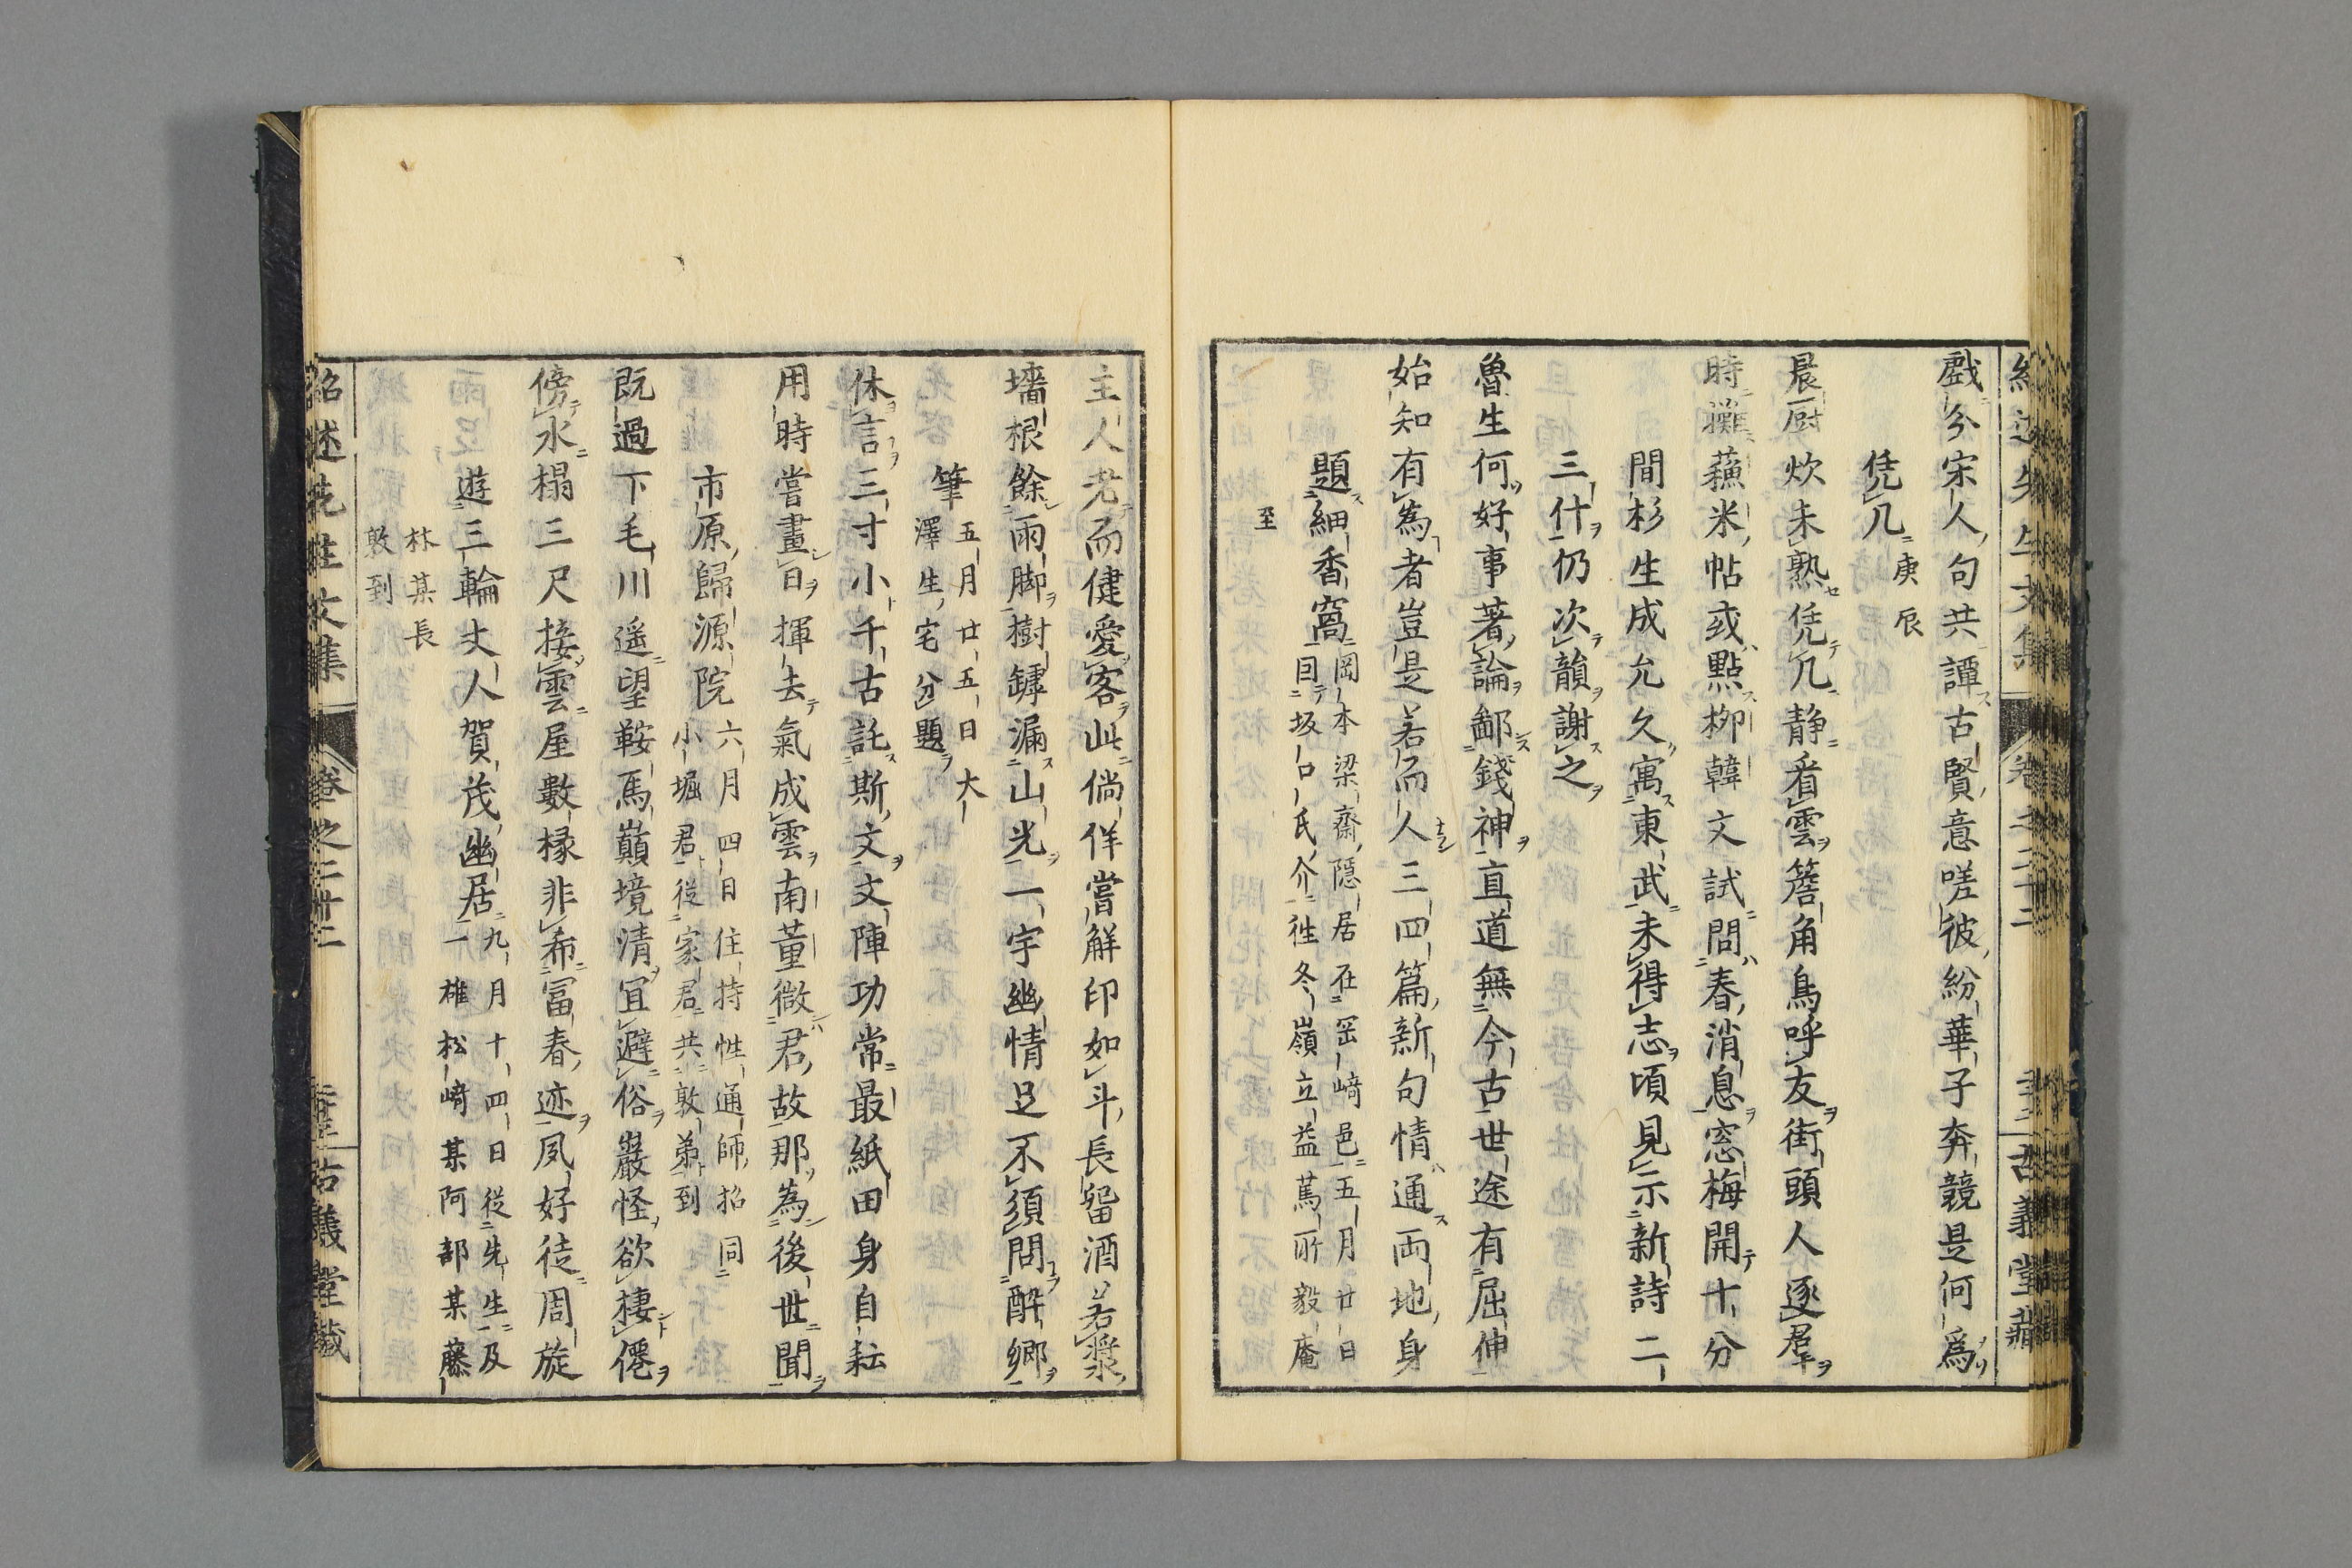 戲今宋人句共譚古賢意嗟彼紛華子奔競是何爲
凭几庚辰
晨厨炊未熟凭几静看雲簷角鳥呼友街頭人逐羣
時難蘓米帖或點柳韓文試問春消息窓梅開十分
間杉生成允久寓東武未得志頃見示新詩二
三什仍次韻謝之
魯生何好事著論鄙錢神直道無今古世途有屈伸
始知有為者豈是若而人三四篇新句情通両地身
題細香窩岡本梁齋隱居在岡﨑邑五月廿日
因坂口氏介徃冬嶺立益蔦所毅庵
至
主人老而健愛客此倘佯嘗觧印如斗長留酒若漿
墻根餘雨脚樹罅漏山光一宇幽情足不須問醉鄉
筆五月廿五日大
澤生宅分題
休言三寸小千古託斯文文陣功常最紙田身自耘
用時嘗畫日揮去氣成雲南董微君故那為後世聞
市原歸源院六月四日住持性通師招同
小堀君從家君共敦弟到
既過下毛川遥望鞍馬巓境清冝避俗巖怪欲棲僊
傍水榻三尺接雲屋數椽非希冨春迹夙好徒周旋
遊三輪丈人賀茂幽居九月十四日從先生及
一雄松﨑某阿部某藤
林某長
敦到
紹述先生文集 卷之二十二 古義堂藏